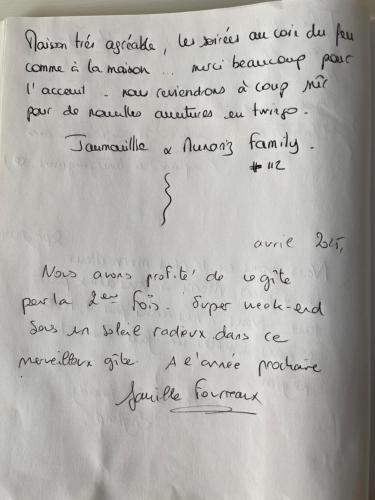 Maison très agréable, les soirées au coin du feu
comme à la maison ... merci beaucoup pour
l'acceuil - nous reviendrons à coup sûr
pour de nouvelles aventures en twingo.
& Munoriz family.
# 112
avril 2015,
Nous avons profité de ce gîte
pour la 2eme fois. Super week-end
sous un soleil radieux dans ce
merveilleux gîte. A l'année prochaine
famille Fourreaux